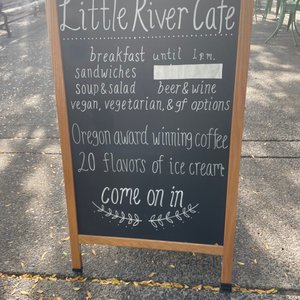 Little River Cafe
breakfast until 1 p.m.
sandwiches
soup & salad beer & wine
vegan, vegetarian, & gf options
Oregon award winning coffee
20 flavors of ice cream
come on in